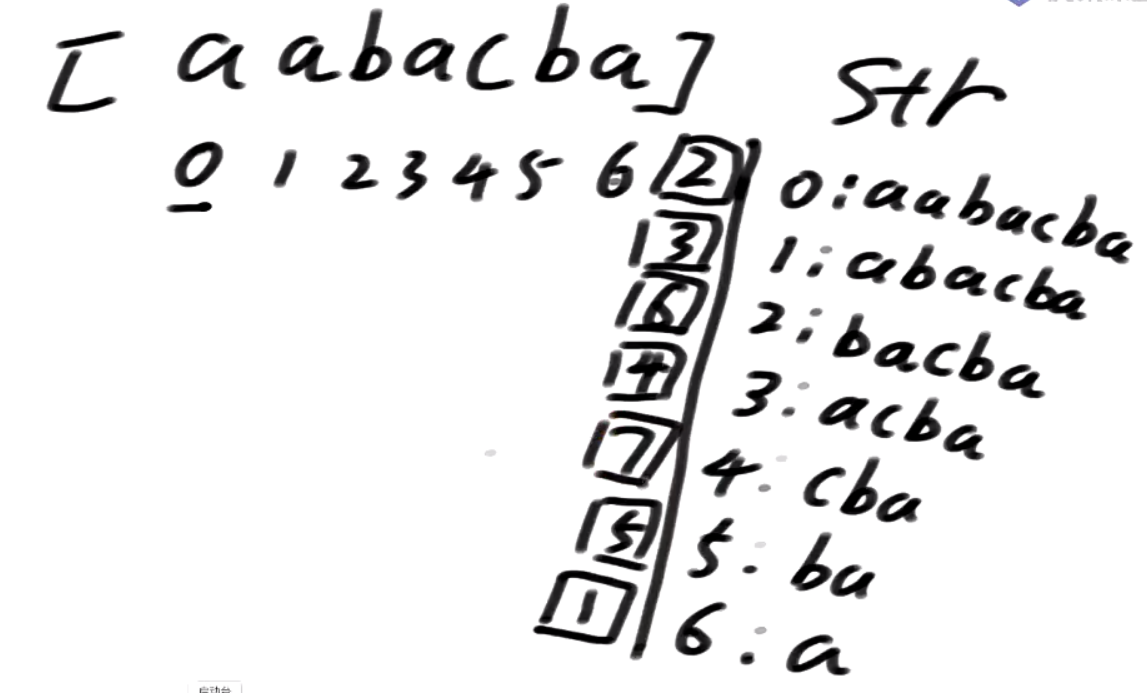 [ a a b a c b a ] Str
0 1 2 3 4 5 6 2 0:aabacba
3 1:abacba
6 2:bacba
4 3:acba
7 4:cba
5 5:ba
1 6:a
启动台